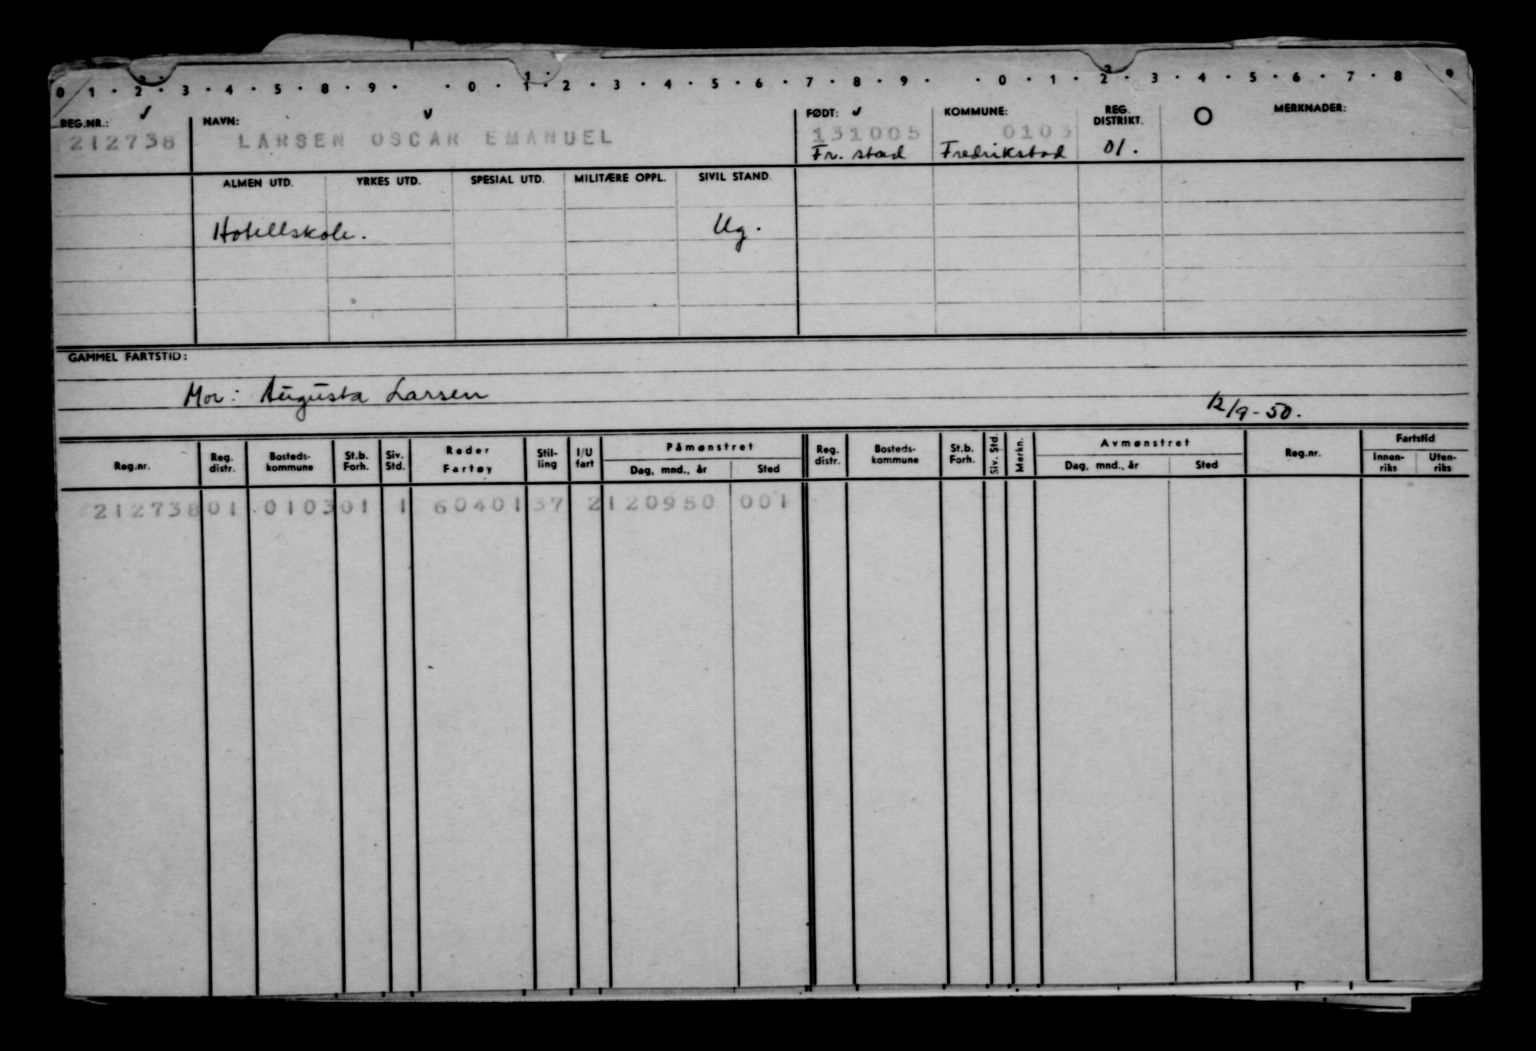 0 1 · 2 · 3 · 4 · 5 · 8 · 9 · · 0 · 1 · 2 · 3 · 4 · 5 · 6 · 7 · 8 · 9 · · 0 · 1 · 2 · 3 · 4 · 5 · 6 · 7 · 8 9
REG.NR.: NAVN: FØDT: KOMMUNE: REG. DISTRIKT. O MERKNADER:
212738 LARSEN OSCAR EMANUEL 131005 0103
Fr. stad Fredrikstad 01.
ALMEN UTD. YRKES UTD. SPESIAL UTD. MILITÆRE OPPL. SIVIL STAND.
Hotellskole. Ug.
GAMMEL FARTSTID:
Mor: Augusta Larsen 12/9-50.
Reg.nr. Reg. distr. Bosteds- kommune St.b. Forh. Siv. Std. Reder Fartøy Stil- ling I/U fart Påmønstret Dag, mnd., år Sted Reg. distr. Bosteds- kommune St.b. Forh. Siv. Std. Merkn. Avmønstret Dag, mnd., år Sted Reg.nr. Fartstid Innen- riks Uten- riks
212738 01 0103 01 1 60401 37 2 120950 001